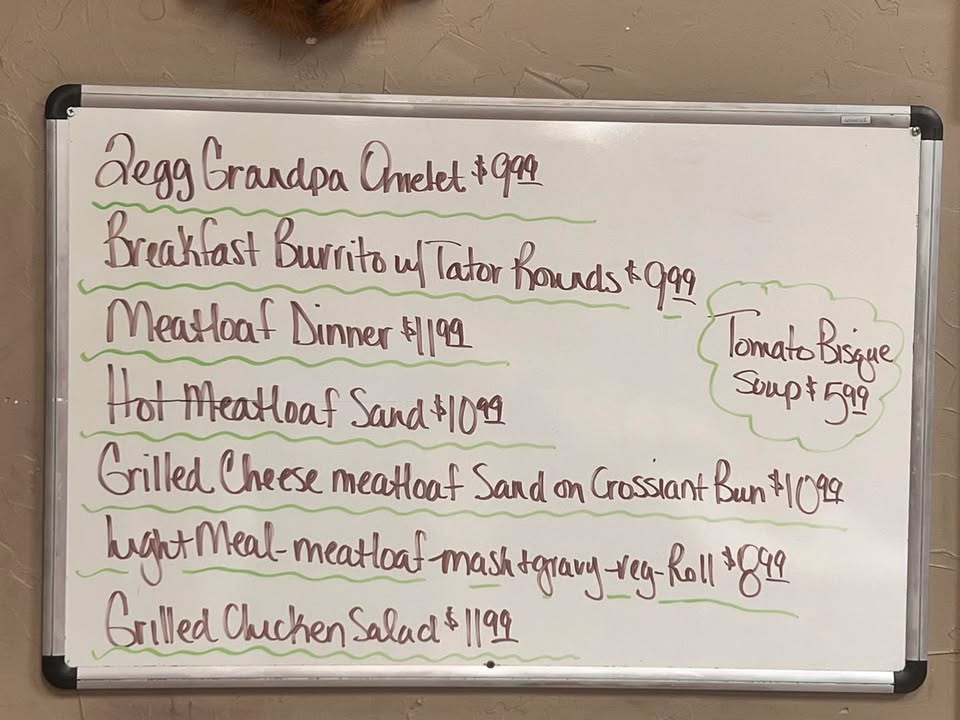 2egg Grandpa Omelet $9.99
Breakfast Burrito w/ Tator Rounds $9.99
Meatloaf Dinner $11.99
Hot Meatloaf Sand $10.99
Grilled Cheese meatloaf Sand on Crossiant Bun $10.99
Light Meal-meatloaf-mash+gravy-veg-Roll $8.99
Grilled Chicken Salad $11.99
Tomato Bisque
Soup $5.99